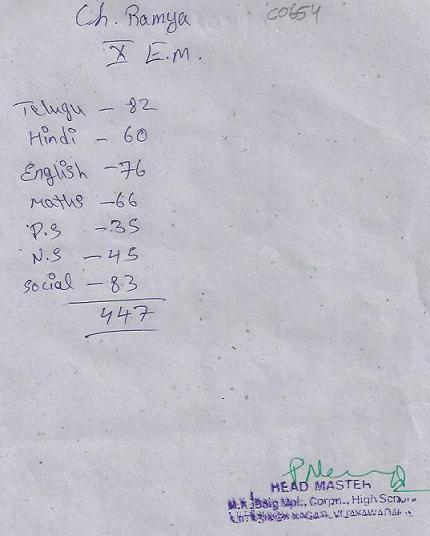 Ch. Ramya
C0654
X E.M.
Telugu - 82
Hindi - 60
English - 76
maths - 66
P.S - 35
N.S - 45
social - 83
447
HEAD MASTER
Mpl., Corpn., High
NAGAR, VIJAYAWADA